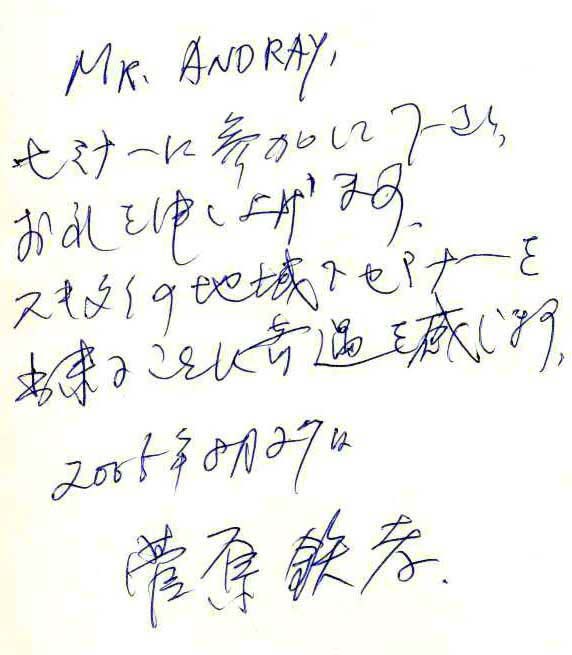 MR. ANDRAY,
セミナーに参加して下さり,
お礼を申し上げます.
スキタイの地域でセミナーを
出来ることに奇遇を感じます,
2005年8月27日
菅原 鉄孝.